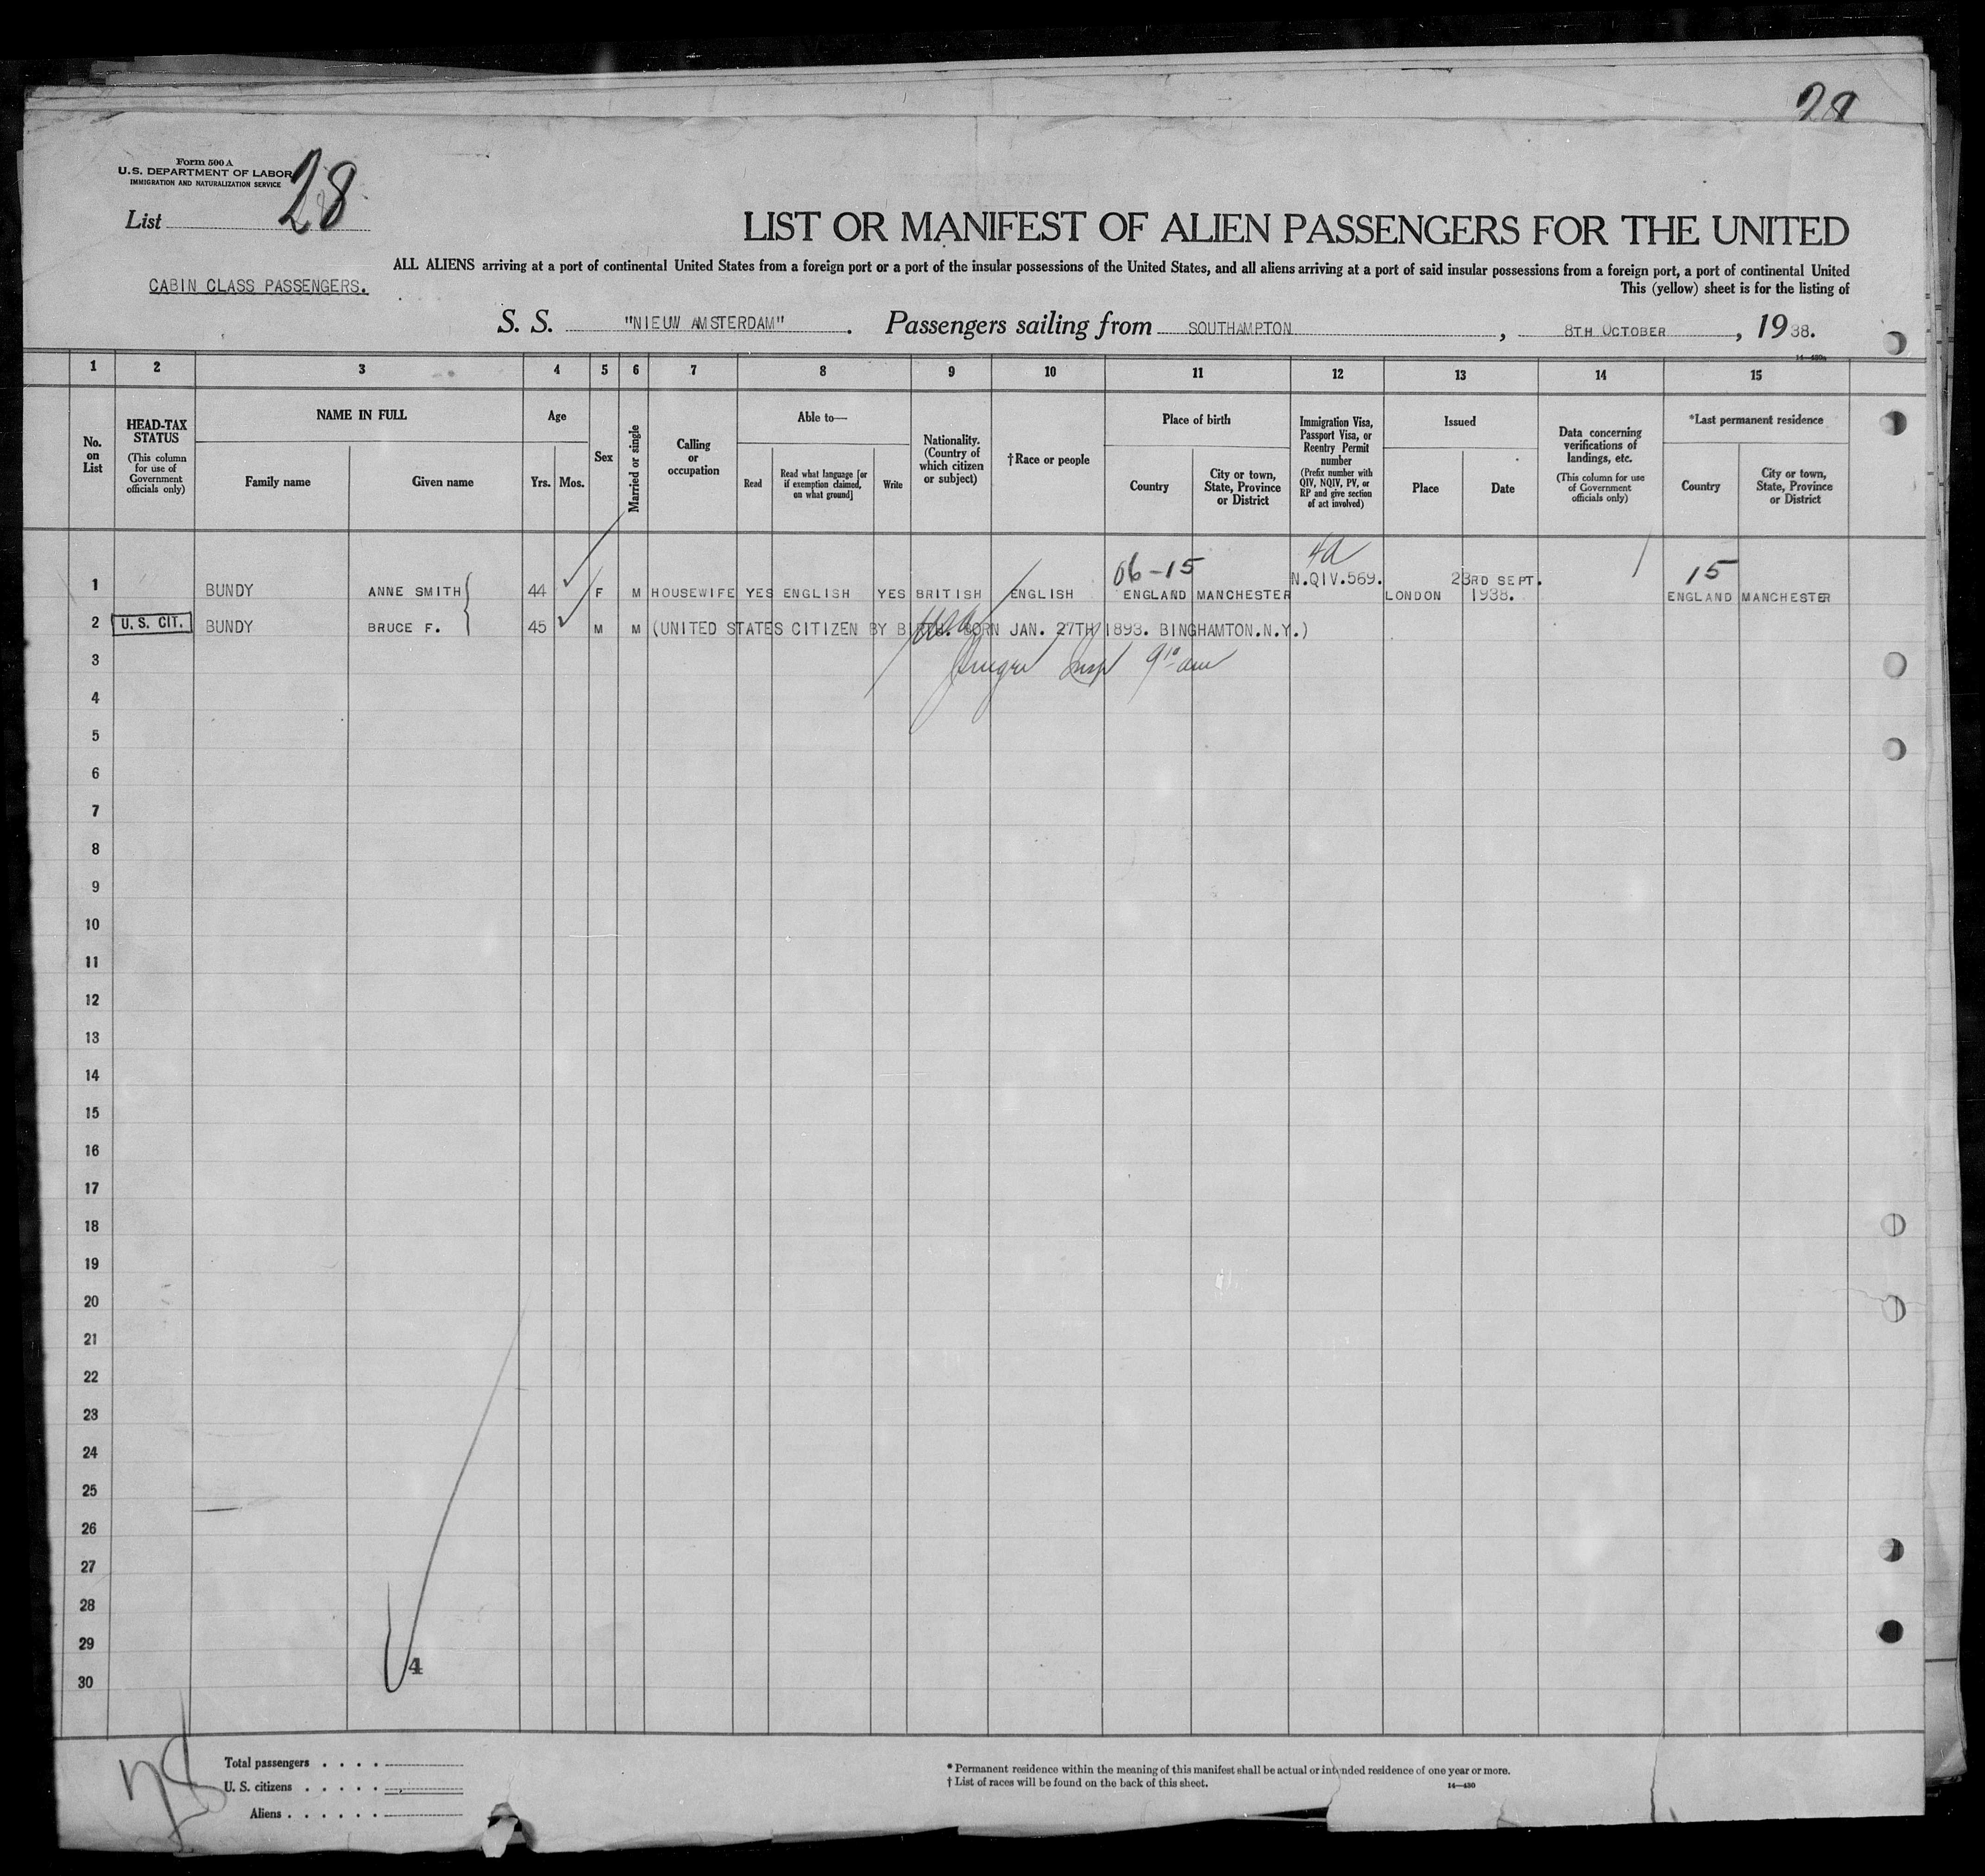 28
Form 500 A
U.S. DEPARTMENT OF LABOR
IMMIGRATION AND NATURALIZATION SERVICE
List 28
LIST OR MANIFEST OF ALIEN PASSENGERS FOR THE UNITED
ALL ALIENS arriving at a port of continental United States from a foreign port or a port of the insular possessions of the United States, and all aliens arriving at a port of said insular possessions from a foreign port, a port of continental United
CABIN CLASS PASSENGERS.
This (yellow) sheet is for the listing of
S. S. "NIEUW AMSTERDAM". Passengers sailing from SOUTHAMPTON, 8TH OCTOBER, 1938.
14—480a
1 2 3 4 5 6 7 8 9 10 11 12 13 14 15
No. on List
HEAD-TAX STATUS
(This column for use of Government officials only)
NAME IN FULL
Family name
Given name
Age
Yrs. Mos.
Sex
Married or single
Calling or occupation
Able to—
Read
Read what language [or if exemption claimed, on what ground]
Write
Nationality. (Country of which citizen or subject)
†Race or people
Place of birth
Country
City or town, State, Province or District
Immigration Visa, Passport Visa, or Reentry Permit number
(Prefix number with QIV, NQIV, PV, or RP and give section of act involved)
Issued
Place
Date
Data concerning verifications of landings, etc.
(This column for use of Government officials only)
*Last permanent residence
Country
City or town, State, Province or District
06-15 4a 15
1 BUNDY ANNE SMITH 44 F M HOUSEWIFE YES ENGLISH YES BRITISH ENGLISH ENGLAND MANCHESTER N.QIV.569. LONDON 23RD SEPT. 1938. ENGLAND MANCHESTER
2 U. S. CIT. BUNDY BRUCE F. 45 M M (UNITED STATES CITIZEN BY BIRTH. BORN JAN. 27TH 1893. BINGHAMTON.N.Y.)
3 Insp 9 10 am
4
5
6
7
8
9
10
11
12
13
14
15
16
17
18
19
20
21
22
23
24
25
26
27
28
29
4
30
28
Total passengers . . . .
U. S. citizens . . . . .
Aliens . . . . . .
* Permanent residence within the meaning of this manifest shall be actual or intended residence of one year or more.
† List of races will be found on the back of this sheet.
14—480